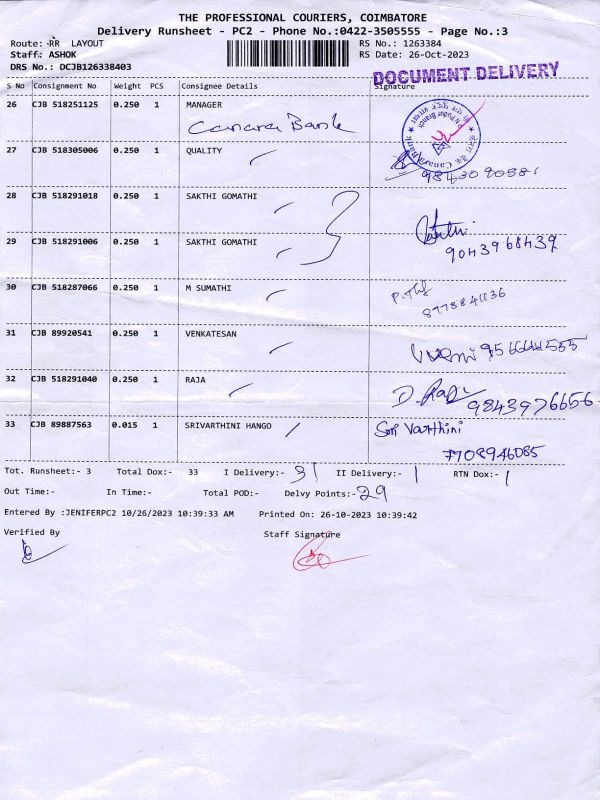 THE PROFESSIONAL COURIERS, COIMBATORE
Delivery Runsheet - PC2 - Phone No.:0422-3505555 - Page No.:3
Route: RR LAYOUT RS No.: 1263384
Staff: ASHOK RS Date: 26-Oct-2023
DRS No.: DCJB126338403
DOCUMENT DELIVERY
S No Consignment No Weight PCS Consignee Details Signature
26 CJB 518251125 0.250 1 MANAGER
Canara Bank
27 CJB 518305006 0.250 1 QUALITY
28 CJB 518291018 0.250 1 SAKTHI GOMATHI
29 CJB 518291006 0.250 1 SAKTHI GOMATHI
9043968439
30 CJB 518287066 0.250 1 M SUMATHI
31 CJB 89920541 0.250 1 VENKATESAN
32 CJB 518291040 0.250 1 RAJA
9843976656
33 CJB 89887563 0.015 1 SRIVARTHINI HANGO Sri Varthini
7708946085
Tot. Runsheet:- 3 Total Dox:- 33 I Delivery:- 31 II Delivery:- 1 RTN Dox:- 1
Out Time:- In Time:- Total POD:- Delvy Points:- 29
Entered By :JENIFERPC2 10/26/2023 10:39:33 AM Printed On: 26-10-2023 10:39:42
Verified By Staff Signature